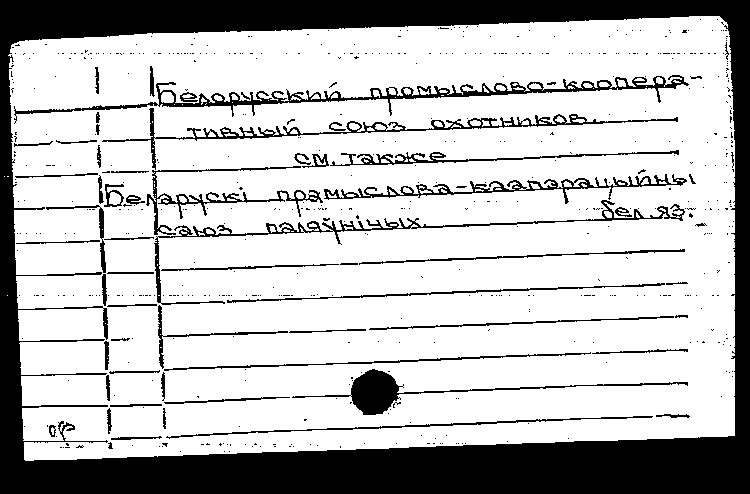 Белорусский промыслово-коопера-
тивный союз охотников.
см. также
Беларускі прамыслова-каапэрацыйны
саюз паляўнічых. бел. яз.